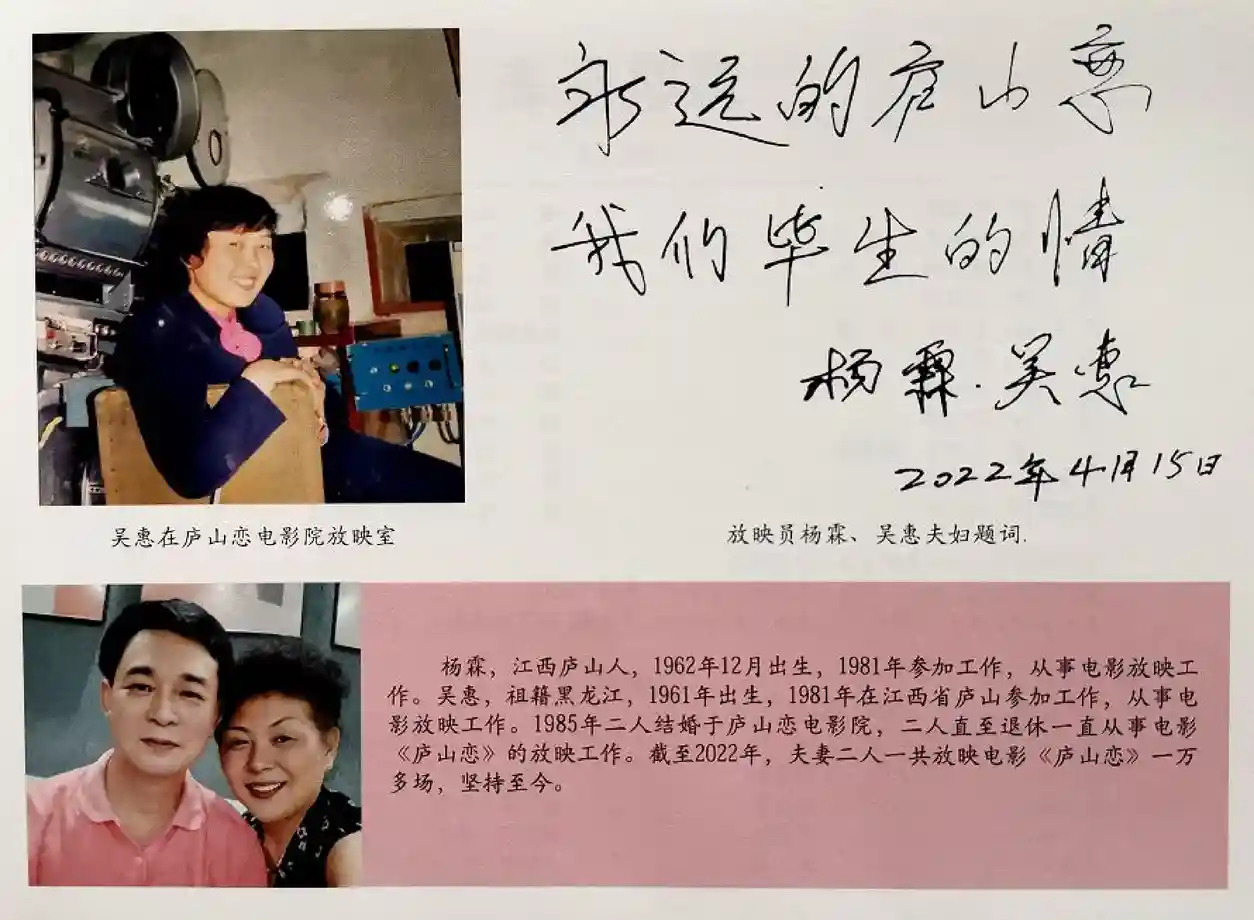 永远的庐山恋
我们毕生的情
杨霖.吴惠
2022年4月15日
吴惠在庐山恋电影院放映室
放映员杨霖、吴惠夫妇题词.
杨霖，江西庐山人，1962年12月出生，1981年参加工作，从事电影放映工
作。吴惠，祖籍黑龙江，1961年出生，1981年在江西省庐山参加工作，从事电
影放映工作。1985年二人结婚于庐山恋电影院，二人直至退休一直从事电影
《庐山恋》的放映工作。截至2022年，夫妻二人一共放映电影《庐山恋》一万
多场，坚持至今。